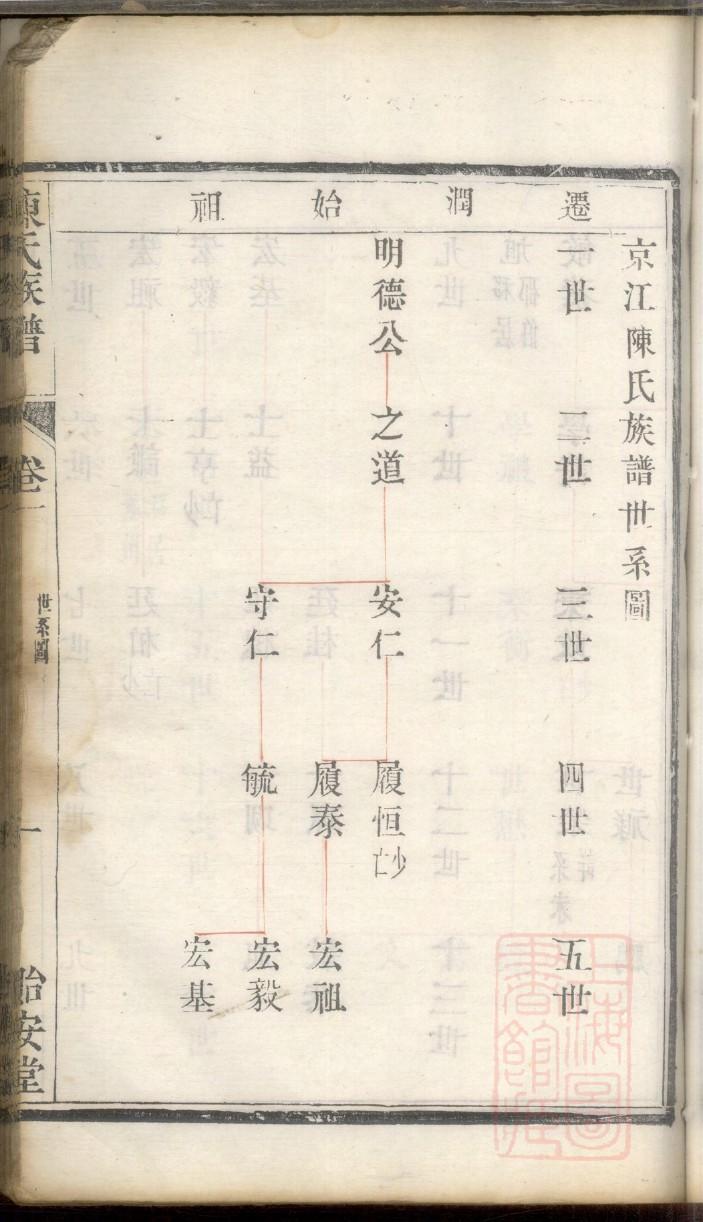 遷潤始祖
京江陳氏族譜世系圖
一世 二世 三世 四世 五世
明德公 之道 安仁 履恒 少亡
履泰 宏祖
守仁 毓 宏毅
宏基
陳氏族譜 卷一 世系圖 一 怡安堂
上海圖書館藏